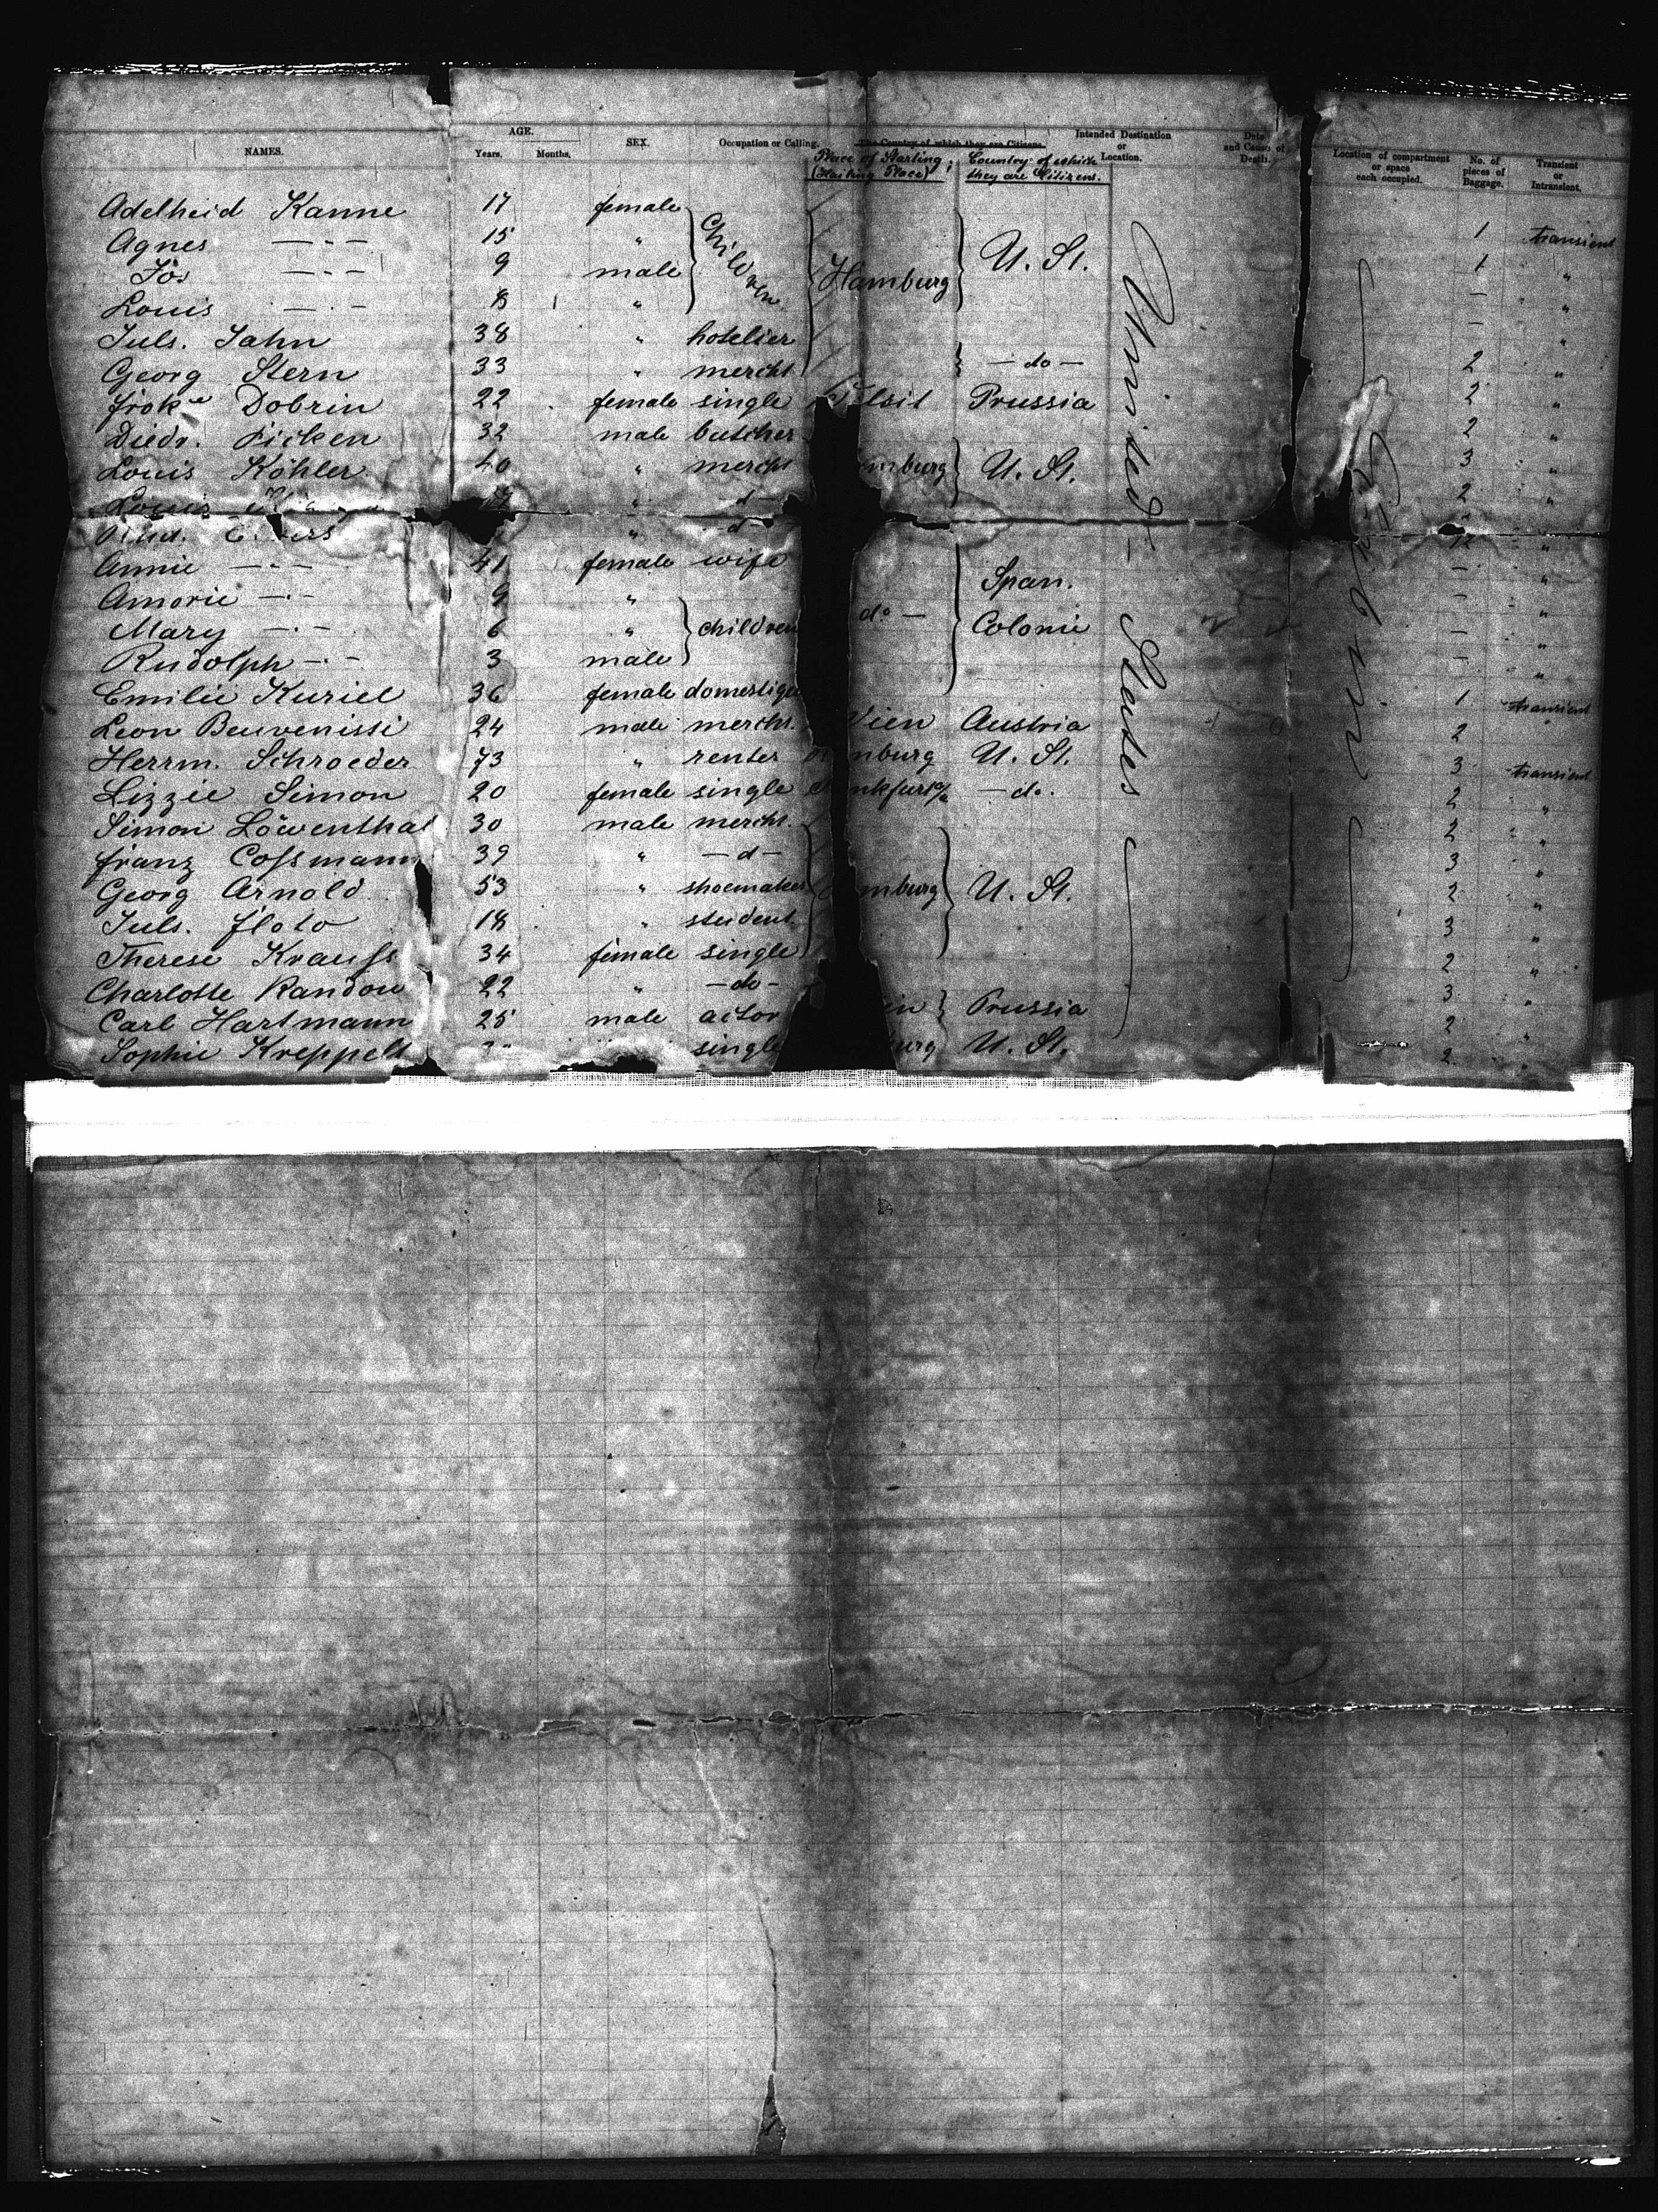 NAMES. AGE. Years. Months. SEX. Occupation or Calling. The Country of which they are Citizens. Place of Starting; (Hailing Place) Country of which they are Citizens. Intended Destination or Location. Date and Cause of Death. Location of compartment or space each occupied. No. of pieces of Baggage. Transient or Intransient.
Adelheid Kanne 17 female Children Hamburg U. St. United States 1 transient
Agnes —"— 15 " 1 "
Jos —"— 9 male — "
Louis —"— 8 " — "
Juls. Jahn 38 " hotelier 2 "
Georg Stern 33 " mercht —do— 2 "
Frok^e Dobrin 22 female single Tilsit Prussia 2 "
Diedr. Ficken 32 male butcher 3 "
Louis Köhler 40 " mercht mburg U. St. 2 "
Louis " d
Rud. " d 12 "
Annie —"— 41 female wife Span. Colonie — "
Amorie —"— 9 " children do — — "
Mary —"— 6 " — "
Rudolph —"— 3 male — "
Emilie Kuriel 36 female domestique 1 transient
Leon Benvenissi 24 male mercht. Wien Austria 2 "
Herrm. Schroeder 73 " renter mburg U. St. 3 transient
Lizzie Simon 20 female single nkfurt a/ —do. 2 "
Simon Löwenthal 30 male mercht. 2 "
Franz Cossmann 39 " —d— 3 "
Georg Arnold 53 " shoemaker mburg U. St. 2 "
Juls. Floto 18 " student 3 "
Therese Krauss 34 female single 2 "
Charlotte Randow 22 " —do— 3 "
Carl Hartmann 25 male actor in Prussia 2 "
Sophie Kreppelt single urg U. St. 2 "